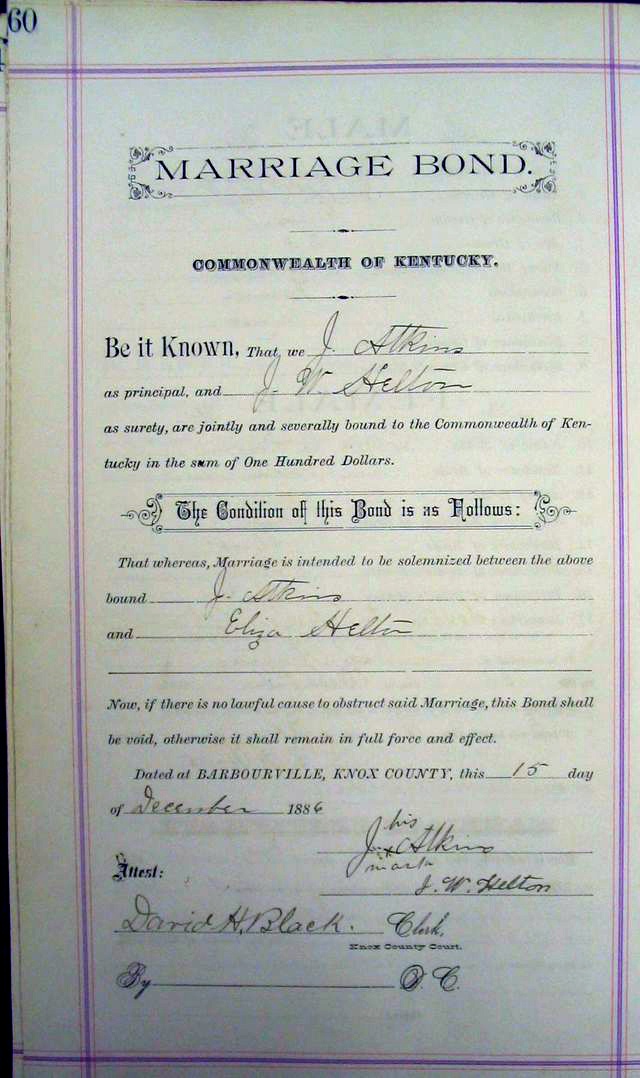 60
MARRIAGE BOND.
COMMONWEALTH OF KENTUCKY.
Be it Known, That we J. Atkins
as principal, and J. W. Helton
as surety, are jointly and severally bound to the Commonwealth of Ken-
tucky in the sum of One Hundred Dollars.
The Condition of this Bond is as Follows:
That whereas, Marriage is intended to be solemnized between the above
bound J. Atkins
and Eliza Helton
Now, if there is no lawful cause to obstruct said Marriage, this Bond shall
be void, otherwise it shall remain in full force and effect.
Dated at BARBOURVILLE, KNOX COUNTY, this 15 day
of December 1886
his
J. x Atkins
mark
Attest:
J. W. Helton
David H. Black. Clerk,
Knox County Court.
By D. C.